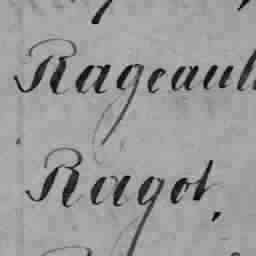 Rageaul
Ragot,